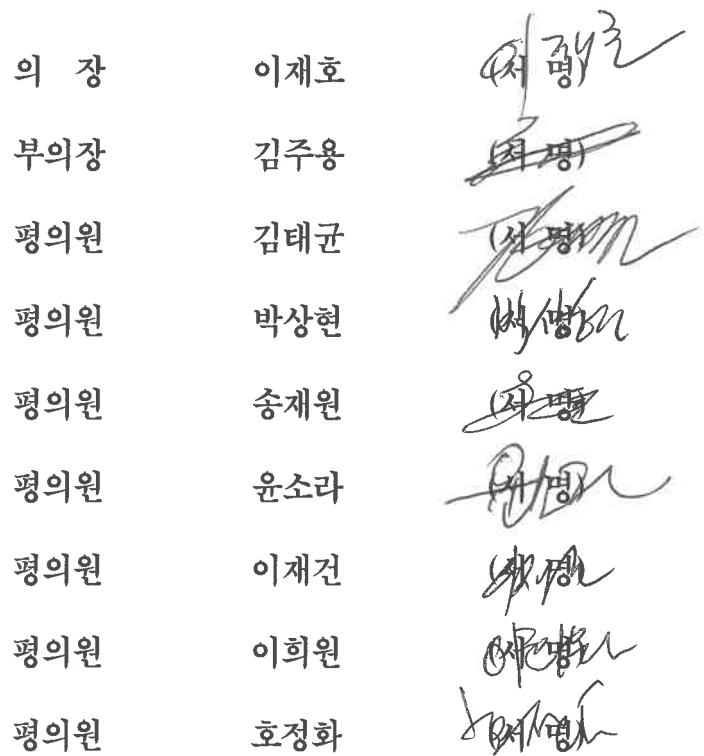 의 장 이재호 (서 명)
부의장 김주용 (서 명)
평의원 김태균 (서 명)
평의원 박상현 (서 명)
평의원 송재원 (서 명)
평의원 윤소라 (서 명)
평의원 이재건 (서 명)
평의원 이희원 (서 명)
평의원 호정화 (서 명)